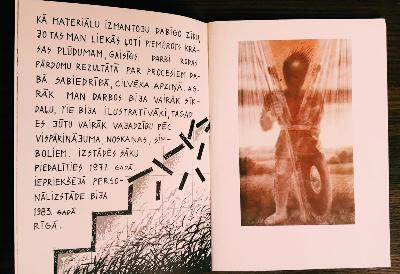 KĀ MATERIĀLU IZMANTOJU DABĪGO ZĪDU,
JO TAS MAN LIEKĀS ĻOTI PIEMĒROTS KRĀ-
SAS PLŪDUMAM, GAISĪGS. DARBI RODAS
PĀRDOMU REZULTĀTĀ PAR PROCESIEM DA-
BĀ, SABIEDRĪBĀ, CILVĒKA APZIŅĀ. AG-
RĀK MAN DARBOS BIJA VAIRĀK SĪK-
DAĻU, TIE BIJA ILUSTRATĪVĀKI, TAGAD
ES JŪTU VAIRĀK VAJADZĪBU PĒC
VISPĀRINĀJUMA, NOSKAŅAS, SIM-
BOLIEM. IZSTĀDĒS SĀKU
PIEDALĪTIES 1977. GADĀ.
IEPRIEKŠĒJĀ PERSO-
NĀLIZSTĀDE BIJA
1983. GADĀ
RĪGĀ.